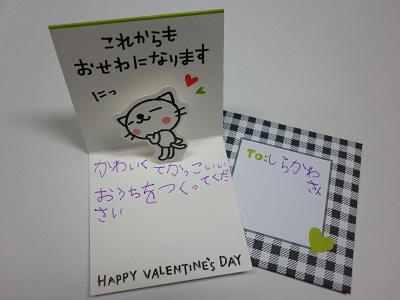 これからも
おせわになります
にっ
かわいくてかっこいい
おうちをつくってくだ
さい
HAPPY VALENTINE'S DAY
TO:しらかわ
さん